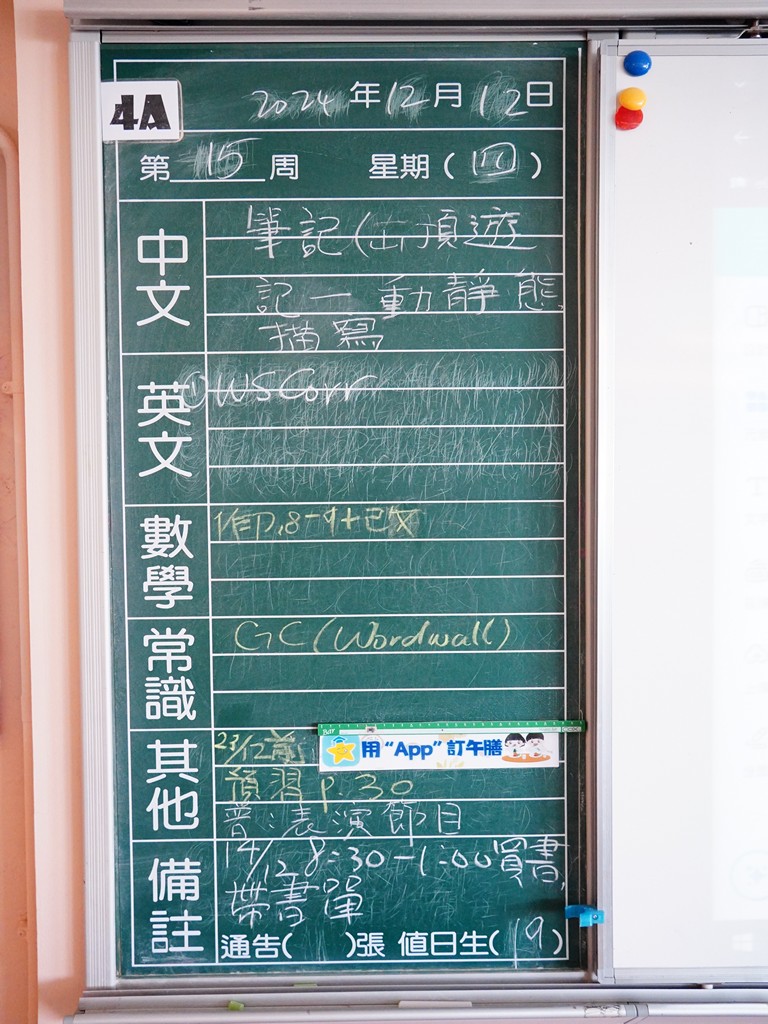 4A
2024 年 12 月 12 日
第 15 周 星期 ( 四 )
中文
筆記(山頂遊
記一 動靜態
描寫
英文
① WS Corr
數學
作 P.8-9+改
常識
GC (Wordwall)
其他
23/12前
用 “App” 訂午膳
預習 p.30
普:表演節目
備註
14/12 8:30-1:00買書,
帶書單
通告( )張 值日生( 19 )